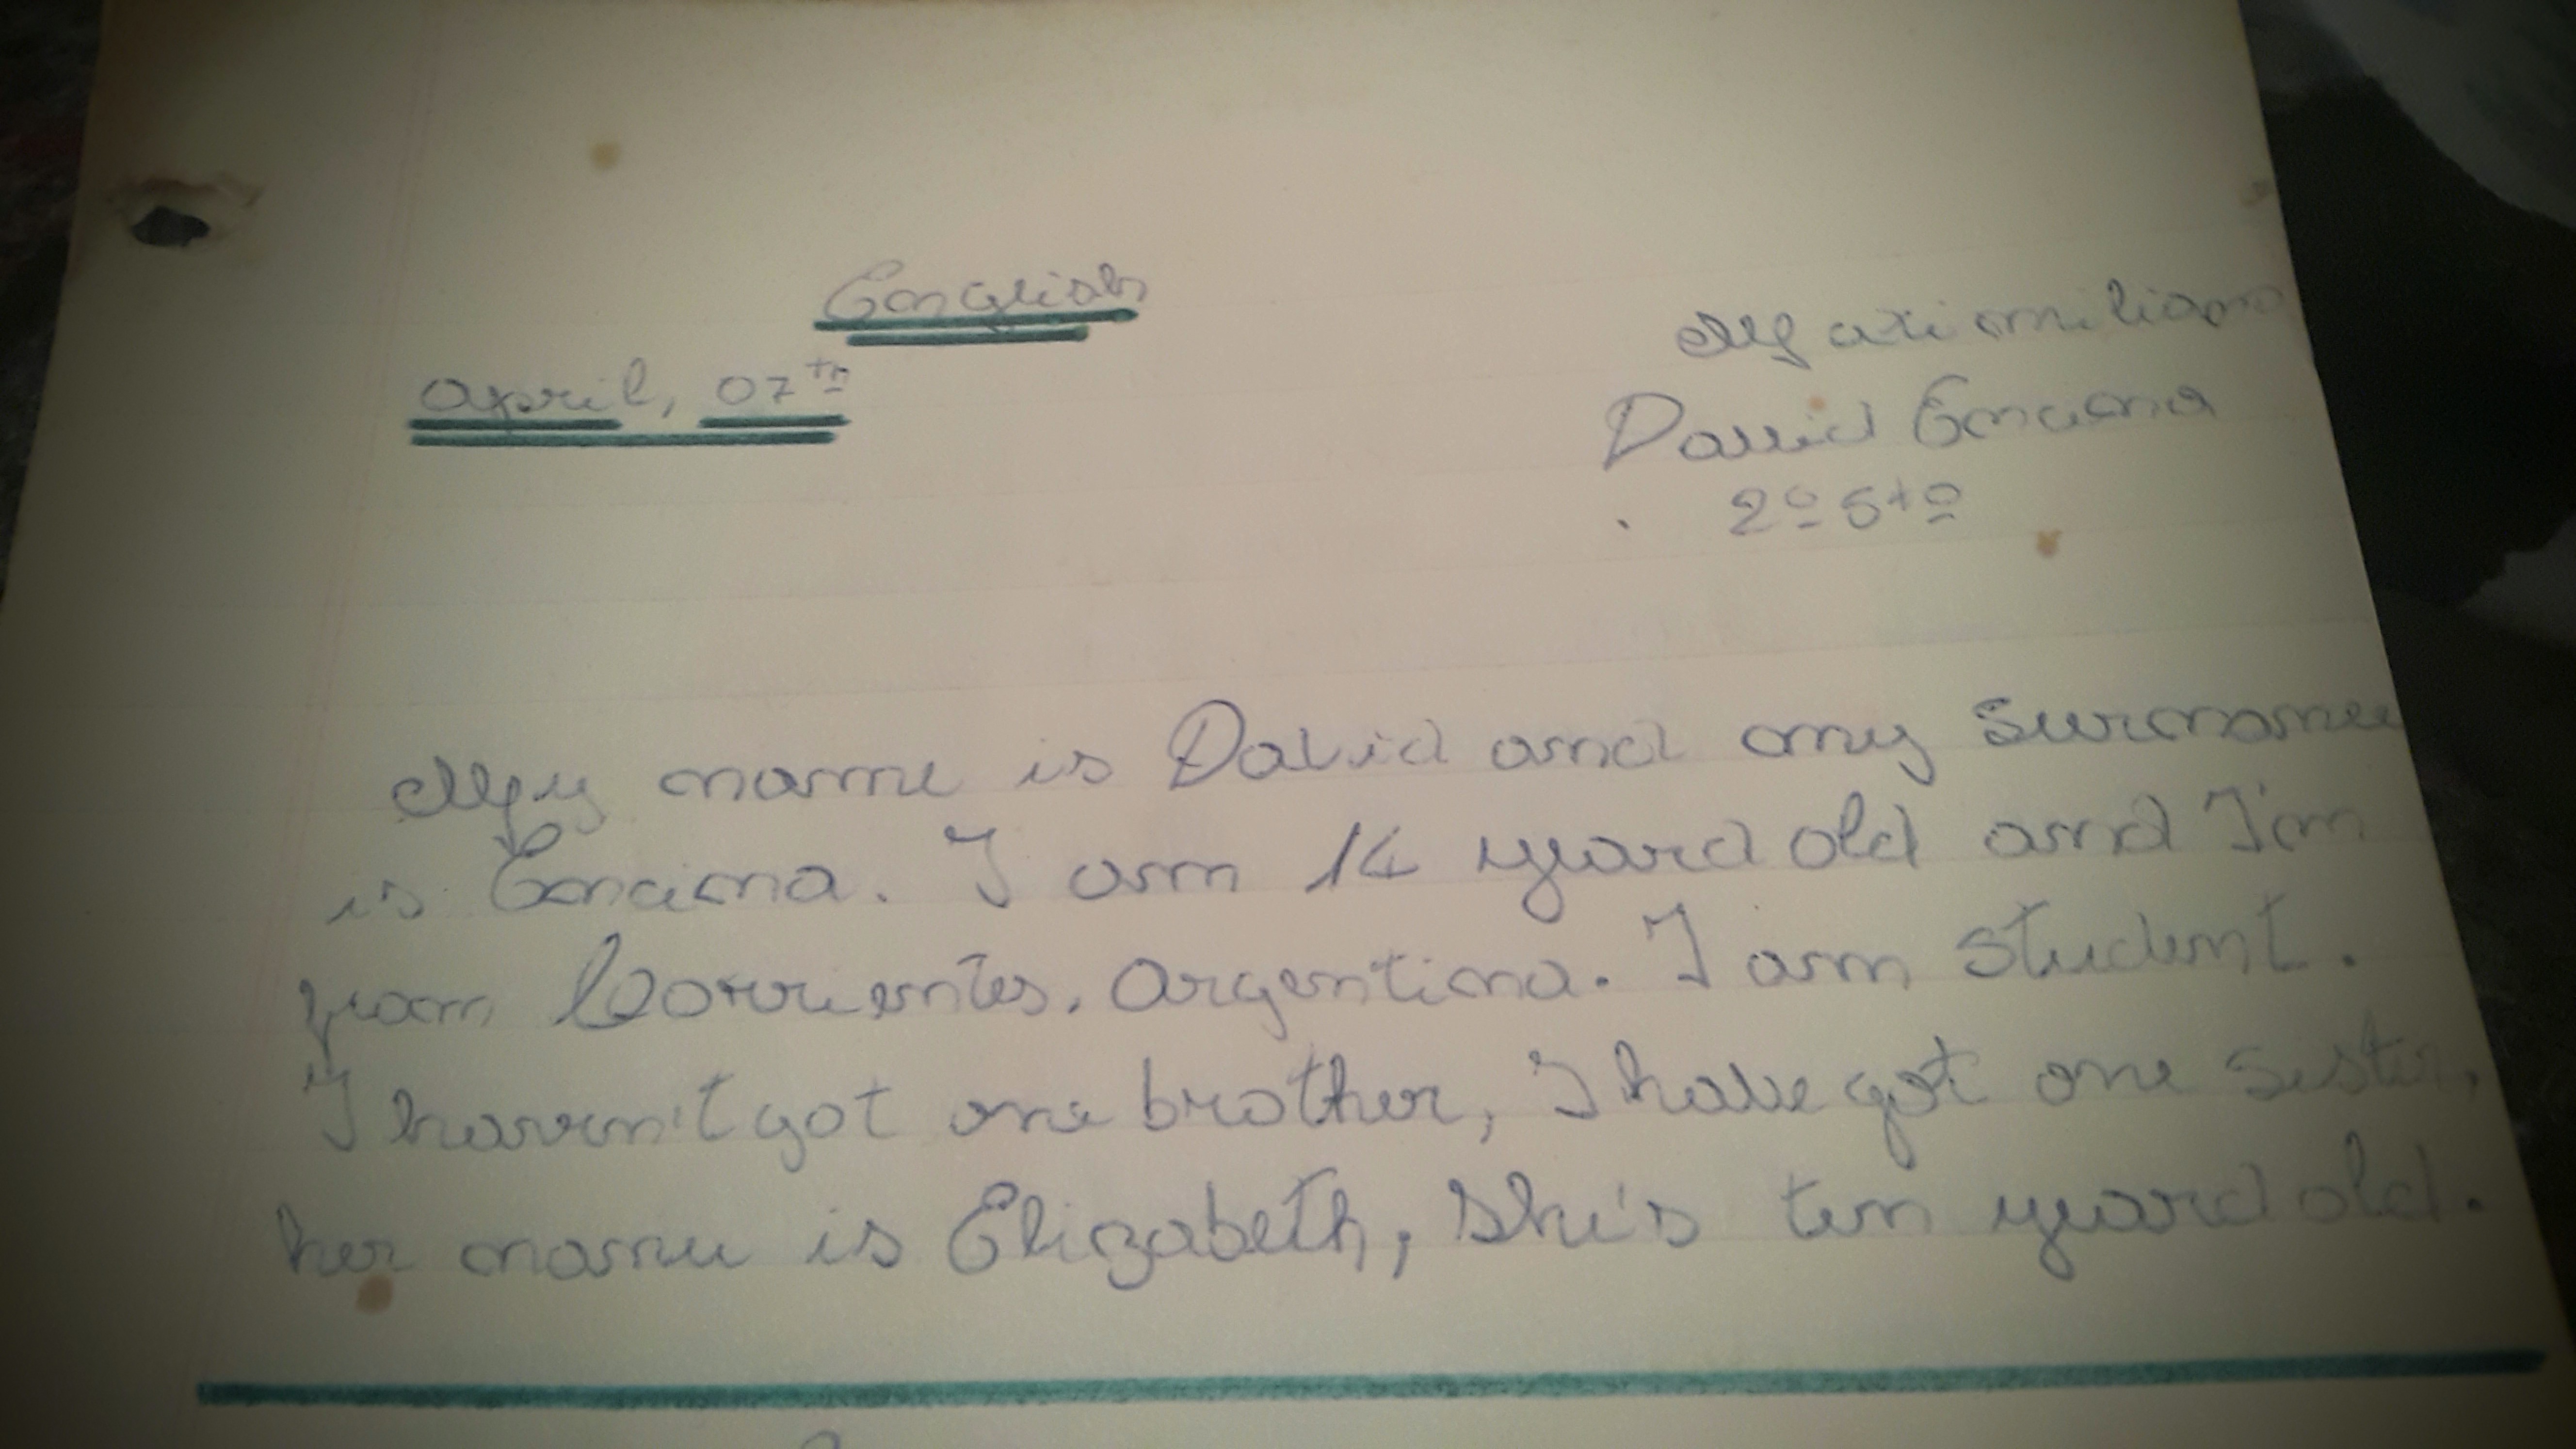 English
April, 07th
Maximiliano
David Encina
2º 5tº
My name is David and my surname
is Encina. I am 14 yeard old and I'm
from Corrientes, Argentina. I am student.
I haven't got one brother, I have got one sister,
her name is Elizabeth, she's ten yeard old.